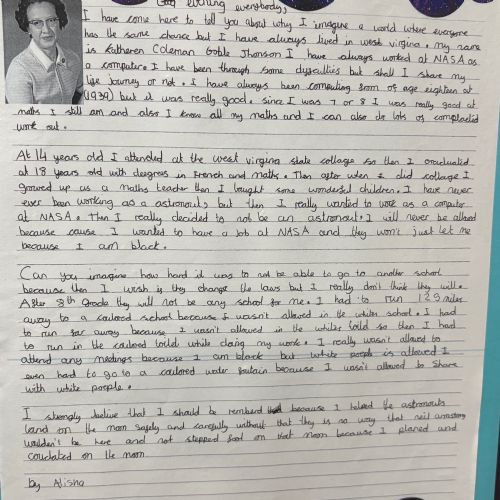 Good evening everybody,
I have come here to tell you about why I imagine a world where everyone
has the same chance but I have always lived in west virgina. my name
is Katheren Coleman Goble Jhonson I have always worked at NASA as
a computer. I have been through some dyffculties but shall I share my
life journey or not. I have always been computing from of age eighteen at
(1939) but it was really good. since I was 7 or 8 I was really good at
maths I still am and also I know all my maths and I can also do lots of complacted
work out.
At 14 years old I attended at the west virgina state collage so then I graduated
at 18 years old with degrees in French and maths. Then after when I did collage I
growed up as a maths teacher then I taught some wonderful children. I have never
ever been working as a astronaut, but then I really wanted to work as a computer
at NASA. Then I really decided to not be an astronaut. I will never be allowed
because cause I wanted to have a job at NASA and they won't just let me
because I am black.
Can you imagine how hard it was to not be able to go to another school
because then I wish is they change the laws but I really don't think they will.
After 8th Grade they will not be any school for me. I had to run 123 miles
away to a coulored school because I wasn't allowed in the whites school. I had
to run far away because I wasn't allowed in the whites toild so then I had
to run in the coulored toild while doing my work. I really wasn't allowed to
attend any meetings because I am black but white people is allowed I
even had to go to a coulored water foutain because I wasn't allowed to share
with white people.
I strongly belive that I should be rembered because I helped the astronauts
land on the moon safely and carefully without that they is no way that neil amstrong
wouldn't be here and not stepped foot on that moon because I planed and
couclated on the moon
by Alisha